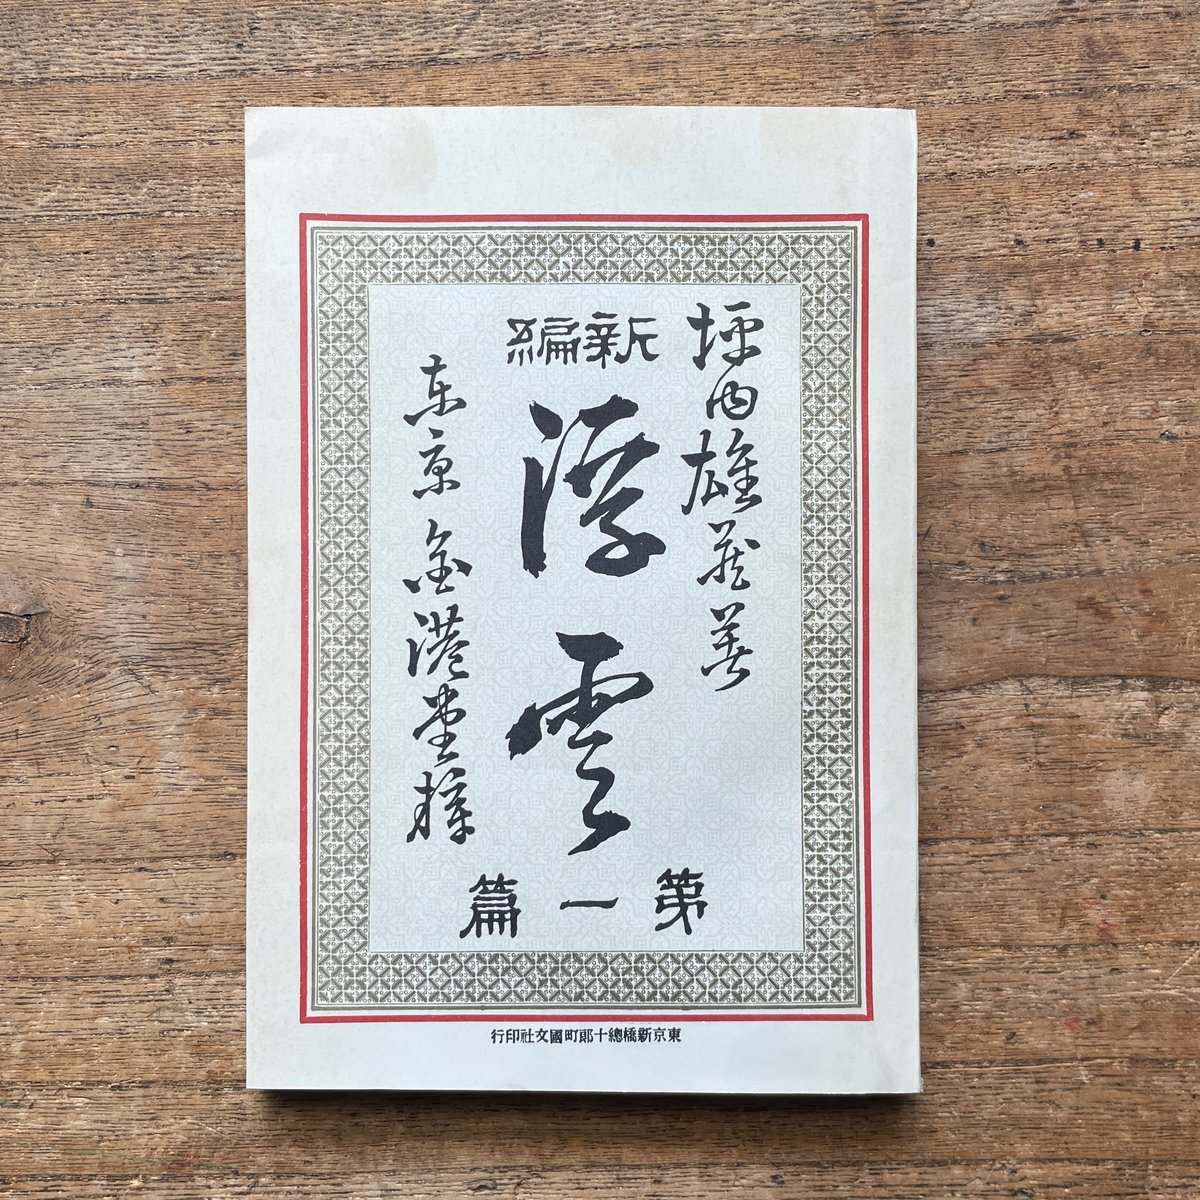 坪内雄蔵著
新編
浮雲
第一篇
東京金港堂梓
東京新橋總十郎町國文社印行